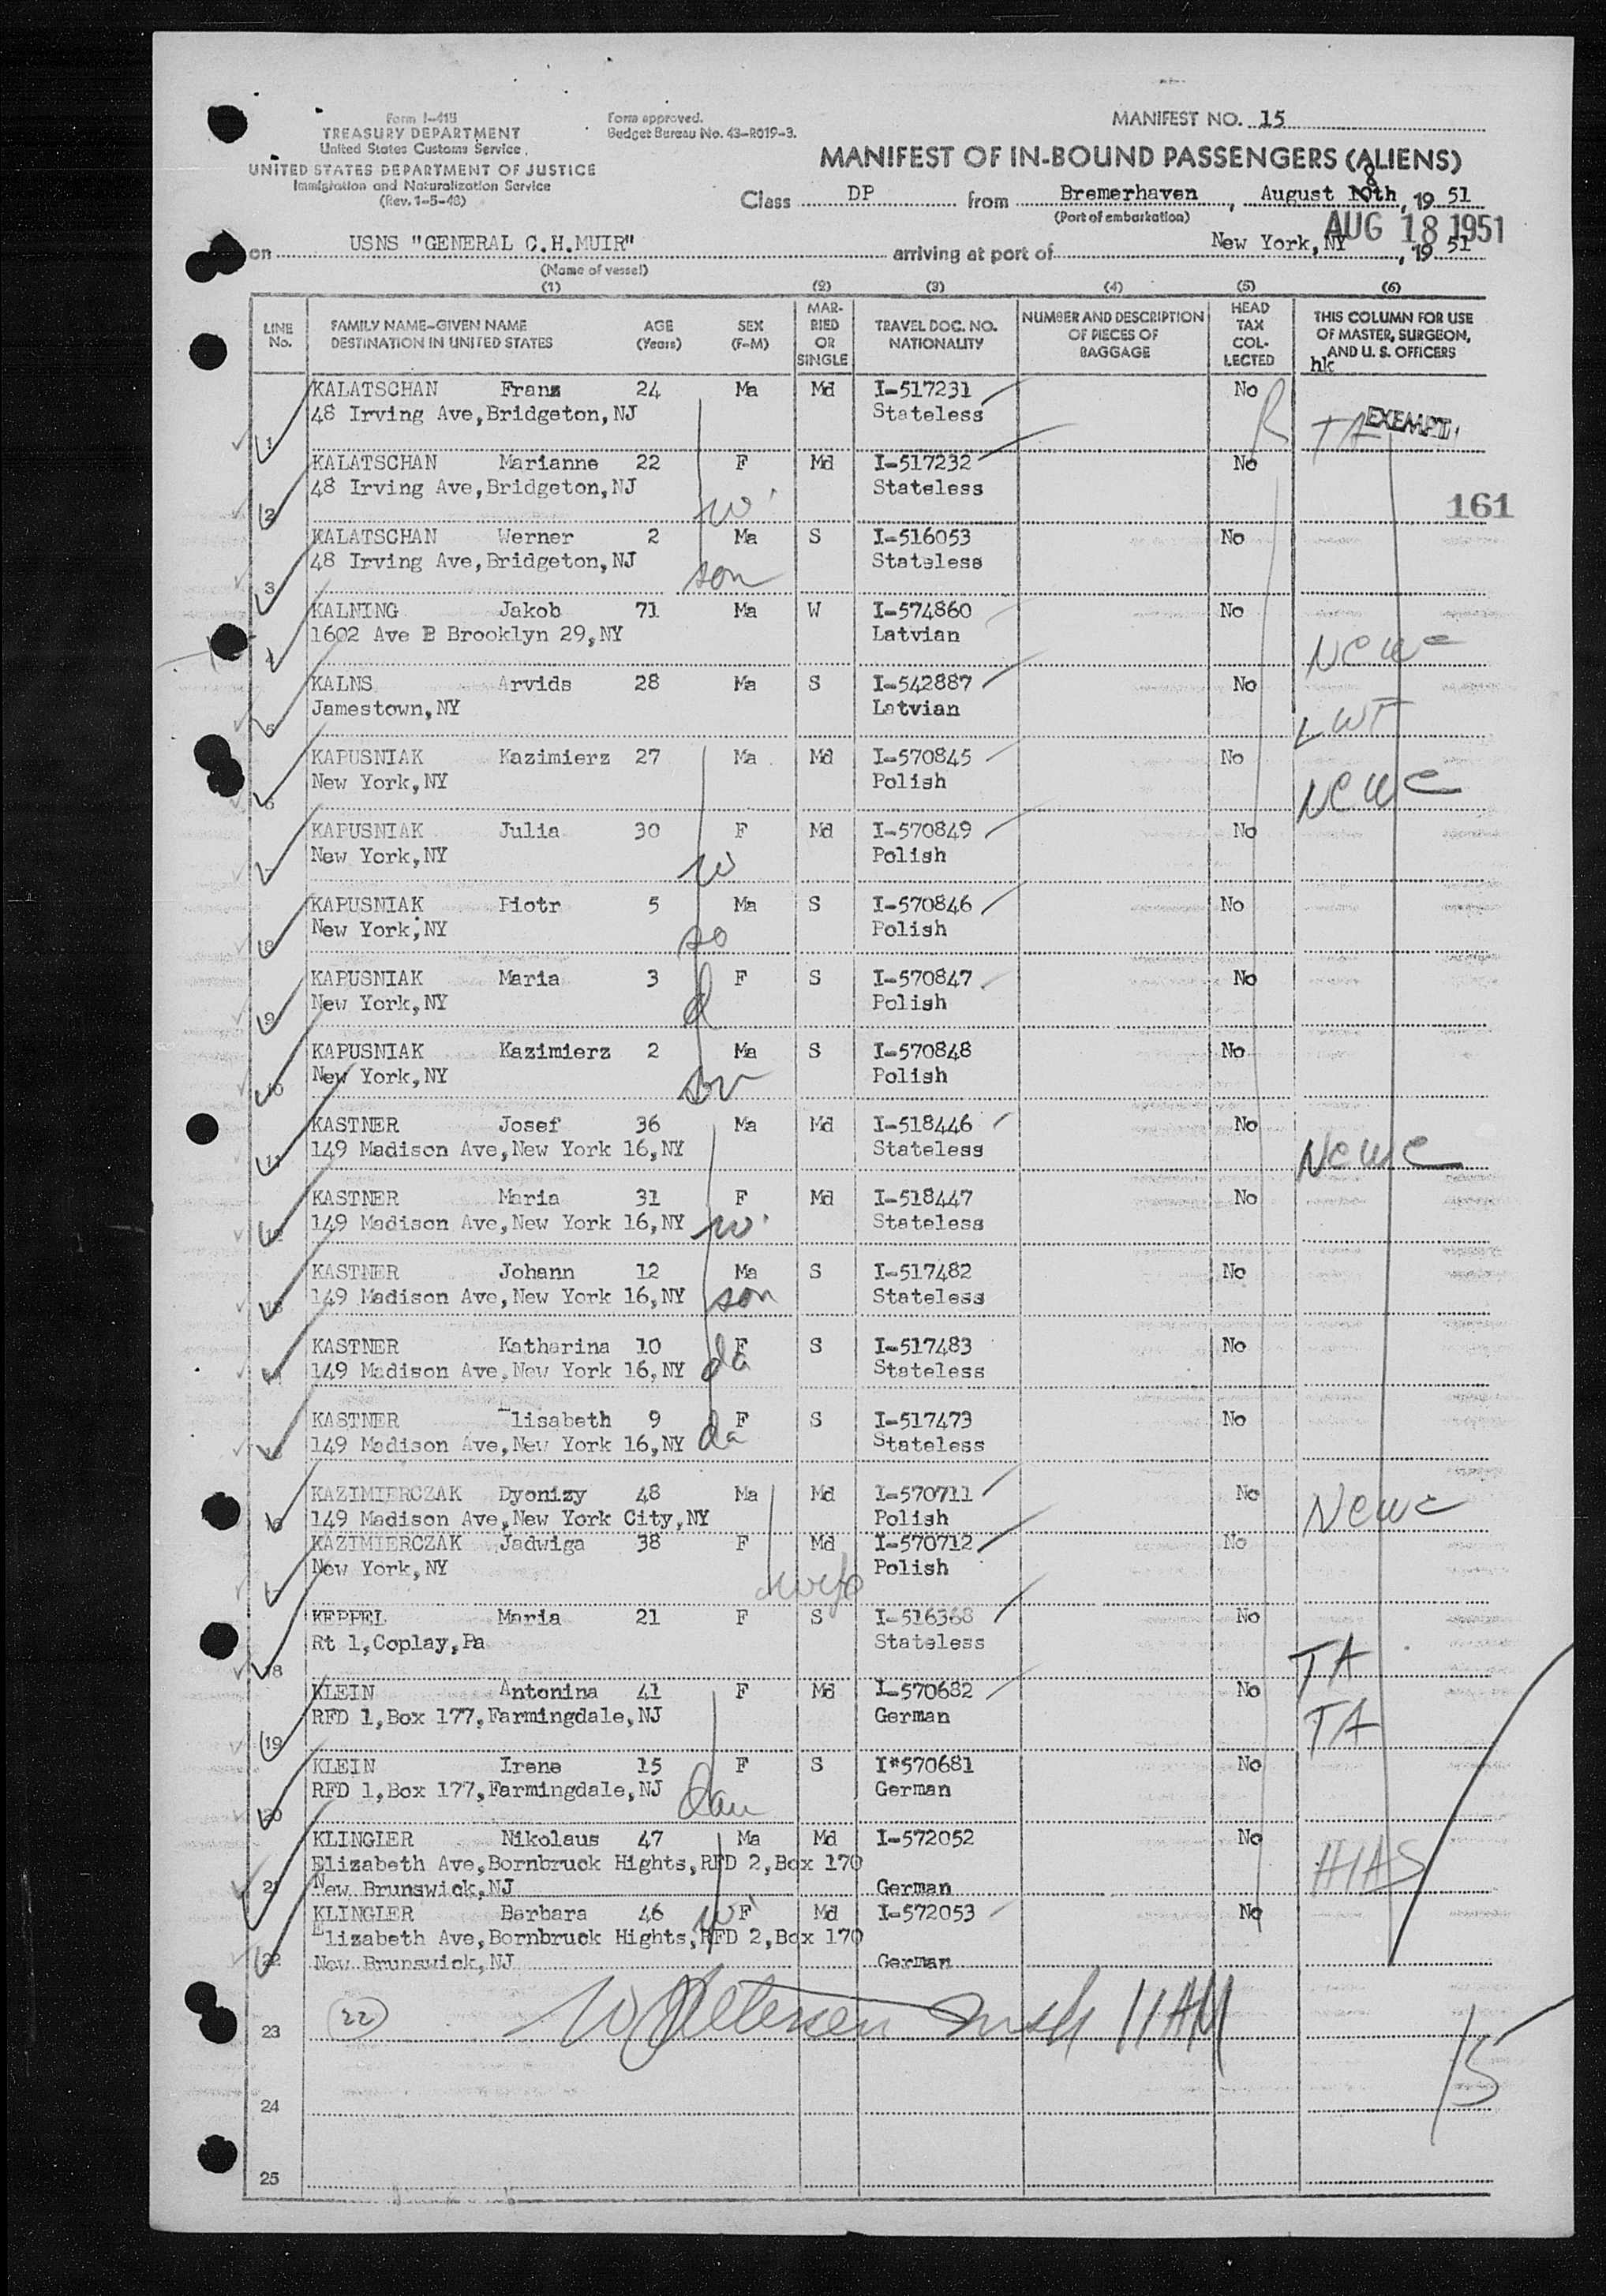 Form I-415
TREASURY DEPARTMENT
United States Customs Service
UNITED STATES DEPARTMENT OF JUSTICE
Immigration and Naturalization Service
(Rev. 1-5-48)
Form approved.
Budget Bureau No. 43-R019-3.
MANIFEST NO. 15
MANIFEST OF IN-BOUND PASSENGERS (ALIENS)
Class DP from Bremerhaven, August 10th, 19 51
8
(Port of embarkation)
AUG 18 1951
on USNS "GENERAL C.H.MUIR" arriving at port of New York, NY, 19 51
(Name of vessel)
(1) (2) (3) (4) (5) (6)
LINE No.
FAMILY NAME-GIVEN NAME
DESTINATION IN UNITED STATES
AGE (Years)
SEX (F-M)
MARRIED OR SINGLE
TRAVEL DOC. NO. NATIONALITY
NUMBER AND DESCRIPTION OF PIECES OF BAGGAGE
HEAD TAX COLLECTED
THIS COLUMN FOR USE OF MASTER, SURGEON, AND U. S. OFFICERS
hk
KALATSCHAN Franz 24 Ma Md I-517231 No
1 48 Irving Ave,Bridgeton,NJ Stateless TA EXEMPT
KALATSCHAN Marianne 22 F Md I-517232 No
2 48 Irving Ave,Bridgeton,NJ w Stateless 161
KALATSCHAN Werner 2 Ma S I-516053 No
3 48 Irving Ave,Bridgeton,NJ son Stateless
KALNING Jakob 71 Ma W I-574860 No
4 1602 Ave P Brooklyn 29,NY Latvian Ncwc
KALNS Arvids 28 Ma S I-542887 No
5 Jamestown,NY Latvian LWF
KAPUSNIAK Kazimierz 27 Ma Md I-570845 No
6 New York,NY Polish Ncwc
KAPUSNIAK Julia 30 F Md I-570849 No
7 New York,NY w Polish
KAPUSNIAK Piotr 5 Ma S I-570846 No
8 New York,NY so Polish
KAPUSNIAK Maria 3 F S I-570847 No
9 New York,NY d Polish
KAPUSNIAK Kazimierz 2 Ma S I-570848 No
10 New York,NY son Polish
KASTNER Josef 36 Ma Md I-518446 No
11 149 Madison Ave,New York 16,NY Stateless Ncwc
KASTNER Maria 31 F Md I-518447 No
12 149 Madison Ave,New York 16,NY w Stateless
KASTNER Johann 12 Ma S I-517482 No
13 149 Madison Ave,New York 16,NY son Stateless
KASTNER Katharina 10 F S I-517483 No
14 149 Madison Ave,New York 16,NY da Stateless
KASTNER Elisabeth 9 F S I-517473 No
15 149 Madison Ave,New York 16,NY da Stateless
KAZIMIERCZAK Dyonizy 48 Ma Md I-570711 No
16 149 Madison Ave,New York City,NY Polish Ncwc
KAZIMIERCZAK Jadwiga 38 F Md I-570712 No
17 New York,NY wife Polish
KEPPEL Maria 21 F S I-516368 No
18 Rt 1,Coplay,Pa Stateless TA
KLEIN Antonina 41 F Md I-570682 No
19 RFD 1,Box 177,Farmingdale,NJ German TA
KLEIN Irene 15 F S I*570681 No
20 RFD 1,Box 177,Farmingdale,NJ dau German
KLINGLER Nikolaus 47 Ma Md I-572052 No
Elizabeth Ave,Bornbruck Hights,RFD 2,Box 170 HIAS
21 New Brunswick,NJ German
KLINGLER Barbara 46 w F Md I-572053 No
Elizabeth Ave,Bornbruck Hights,RFD 2,Box 170
22 New Brunswick,NJ German
23 (22) 11 AM
24 15
25